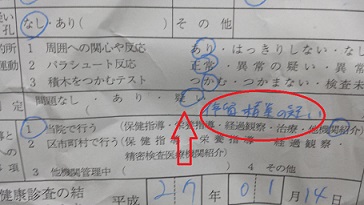 なし・あり( その他
1 周囲への関心や反応 あり・はっきりしない・な
運動 2 パラシュート反応 正常・異常の疑い・異
3 積木をつかむテスト つかむ・つかまない・検査未
定 問題なし ( あり・疑
1 当院で行う (保健指導・栄養指導・経過観察・治療・他機関紹介)
2 区市町村で行う (保健指導・栄養指導・経過観察・
精密検査医療機関紹介)
3 他機関管理中 4 その他
健康診査の結 平成 27年 01月14日